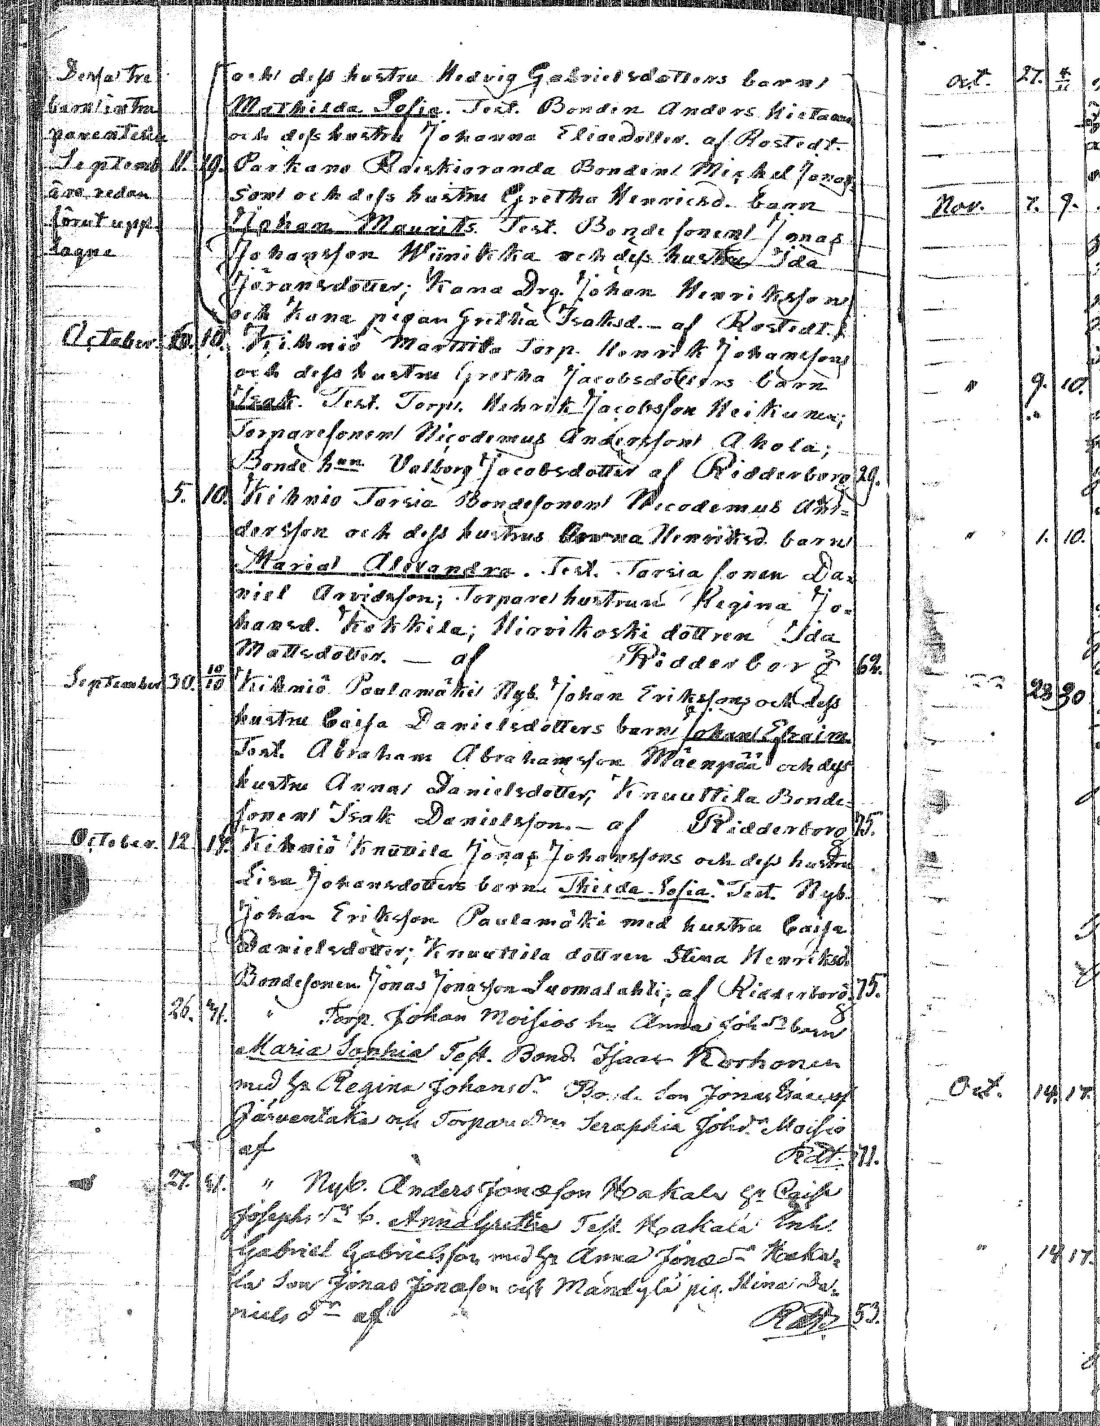 Dessa tre
barn intra
parenthesin
äro redan
förut upp-
tagne
och dess hustru Hedvig Gabrielsdotters barn
Mathilda Sofia. Test. Bonden Anders Kietaan
och dess hustru Johanna Eliaedotter. af Rostedt.
Septemb. 11. 19. Parkano Raiskioranda Bonden Michel Jonas-
son och dess hustru Gretha Henricsd. barn
Johan Maurits. Test. Bondesonen Jonas
Johansson Wiinikka och dess hustru Ida
Göransdotter; Kana Drg. Johan Henriksson
och Kana pigan Gretha Isaksd. — af Rostedt.
October. 10. Kihniö Marttila Torp. Henrik Johanssons
och dess hustru Gretha Jacobsdotters barn
Isak. Test. Torp. Hehrik Jacobsson Heikunen;
Torparesonen Nicodemus Andersson Ahola;
Bonde hun Valborg Jacobsdotter af Ridderborg 29.
5. 10. Kihnio Torsia Bondesonen Nicodemus An-
dersson och dess hustrus Anna Henriksd. barn
Maria Alexandra. Test. Torsia sonen Da-
niel Arvidsson; Torpare hustrun Regina Jo-
hansd. Kokkila; Hirvikoski dottren Ida
Mattsdotter. — af Ridderborg 62.
September 30. 10/10 Kihniö Paulamäki Nyb. Johan Erikssons och dess
hustru Caisa Danielsdotters barn Johan Efraim
Test. Abraham Abrahamsson Mäenpää och dess
hustru Anna Danielsdotter; Knuuttila Bonde-
sonen Isak Danielsson. — af Ridderborg 75.
October. 12. 14. Kihniö Knuuttila Jonas Johanssons och dess hustru
Lisa Johansdotters barn Thilda Sofia. Test. Nyb.
Johan Eriksson Paulamäki med hustru Caisa
Danielsdotter; Knuuttila dottren Stina Henriksd.
Bondesonen Jonas Jonasson Luomalahti; af Ridderborg 75.
26. 31. " Torp. Johan Moisios hu Anna Joh. dr barn
Maria Sophia Test. Bond. Isaac Korhonen
med hu Regina Johans dr Bonde son Jonas
Järventaka och Torpare dr Seraphia Joh dr Moisio
af Rdt. 71.
27. 31. " Nyb. Anders Jonasson Hakala hu Caisa
Josephs dr b. Anna Gretha Test. Hakala Inh.
Gabriel Gabrielsson med hu Anna Jonas dr Haka-
la Son Jonas Jonasson och Mändylä pig. Stina Da-
niels dr af Rdt 53.
Oct. 27. 4/11
Nov. 7. 9.
" 9. 10.
" 1. 10.
23 30
Oct. 14. 17.
" 14 17.